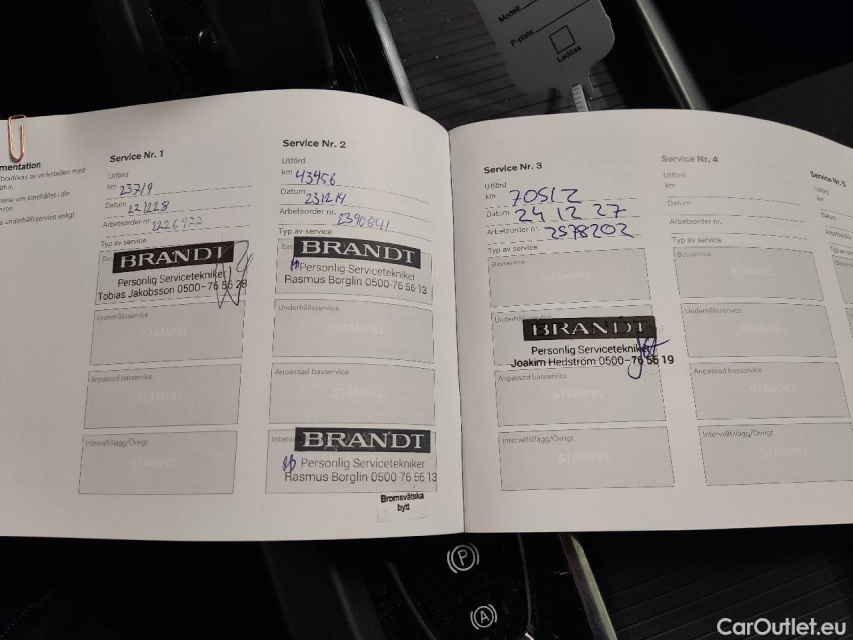 Modell:
P-plats:
Laddas
mentation
Service Nr. 1
Utförd
km 23719
Datum 221228
Arbetsorder nr. 2226922
Typ av service
BRANDT
Personlig Servicetekniker
Tobias Jakobsson 0500-76 55 28
Underhållsservice
STÄMPEL
Anpassad basservice
STÄMPEL
Intervalltillägg/Övrigt
STÄMPEL
Service Nr. 2
Utförd
km 43456
Datum 231214
Arbetsorder nr. 2390841
Typ av service
BRANDT
Personlig Servicetekniker
Rasmus Borglin 0500-76 56 13
Underhållsservice
STÄMPEL
Anpassad basservice
STÄMPEL
BRANDT
Personlig Servicetekniker
Rasmus Borglin 0500-76 56 13
Bromsvätska
bytt
Service Nr. 3
Utförd
km 70512
Datum 24 12 27
Arbetsorder nr. 2598202
Typ av service
Basservice
STÄMPEL
BRANDT
Personlig Servicetekniker
Joakim Hedström 0500-76 56 19
Anpassad basservice
STÄMPEL
Intervalltillägg/Övrigt
STÄMPEL
Service Nr. 4
Utförd
km
Datum
Arbetsorder nr.
Typ av service
Basservice
STÄMPEL
Underhållsservice
STÄMPEL
Anpassad basservice
STÄMPEL
Intervalltillägg/Övrigt
STÄMPEL
Service Nr. 5
Utförd
km
Datum
P
A
CarOutlet.eu